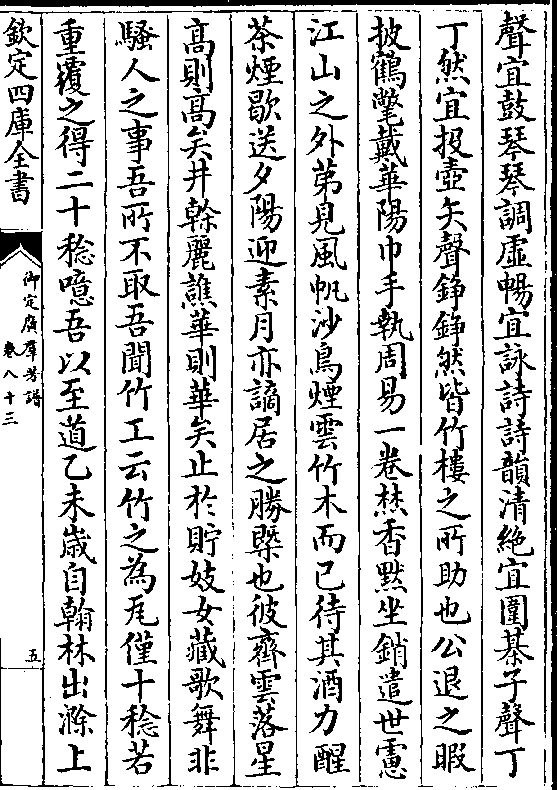 聲宜鼓琴琴調虛暢宜詠詩詩韻清絶宜圍棊子聲丁
丁然宜投壺矢聲錚錚然皆竹樓之所助也公退之暇
披鶴氅戴華陽巾手執周易一卷焚香默坐銷遣世慮
江山之外第見風帆沙鳥煙雲竹木而已待其酒力醒
茶煙歇送夕陽迎素月亦謫居之勝槩也彼齊雲落星
高則高矣井幹麗譙華則華矣止於貯妓女藏歌舞非
騷人之事吾所不取吾聞竹工云竹之為瓦僅十稔若
重覆之得二十稔噫吾以至道乙未歲自翰林出滁上
欽定四庫全書
御定廣羣芳譜
卷八十三
五